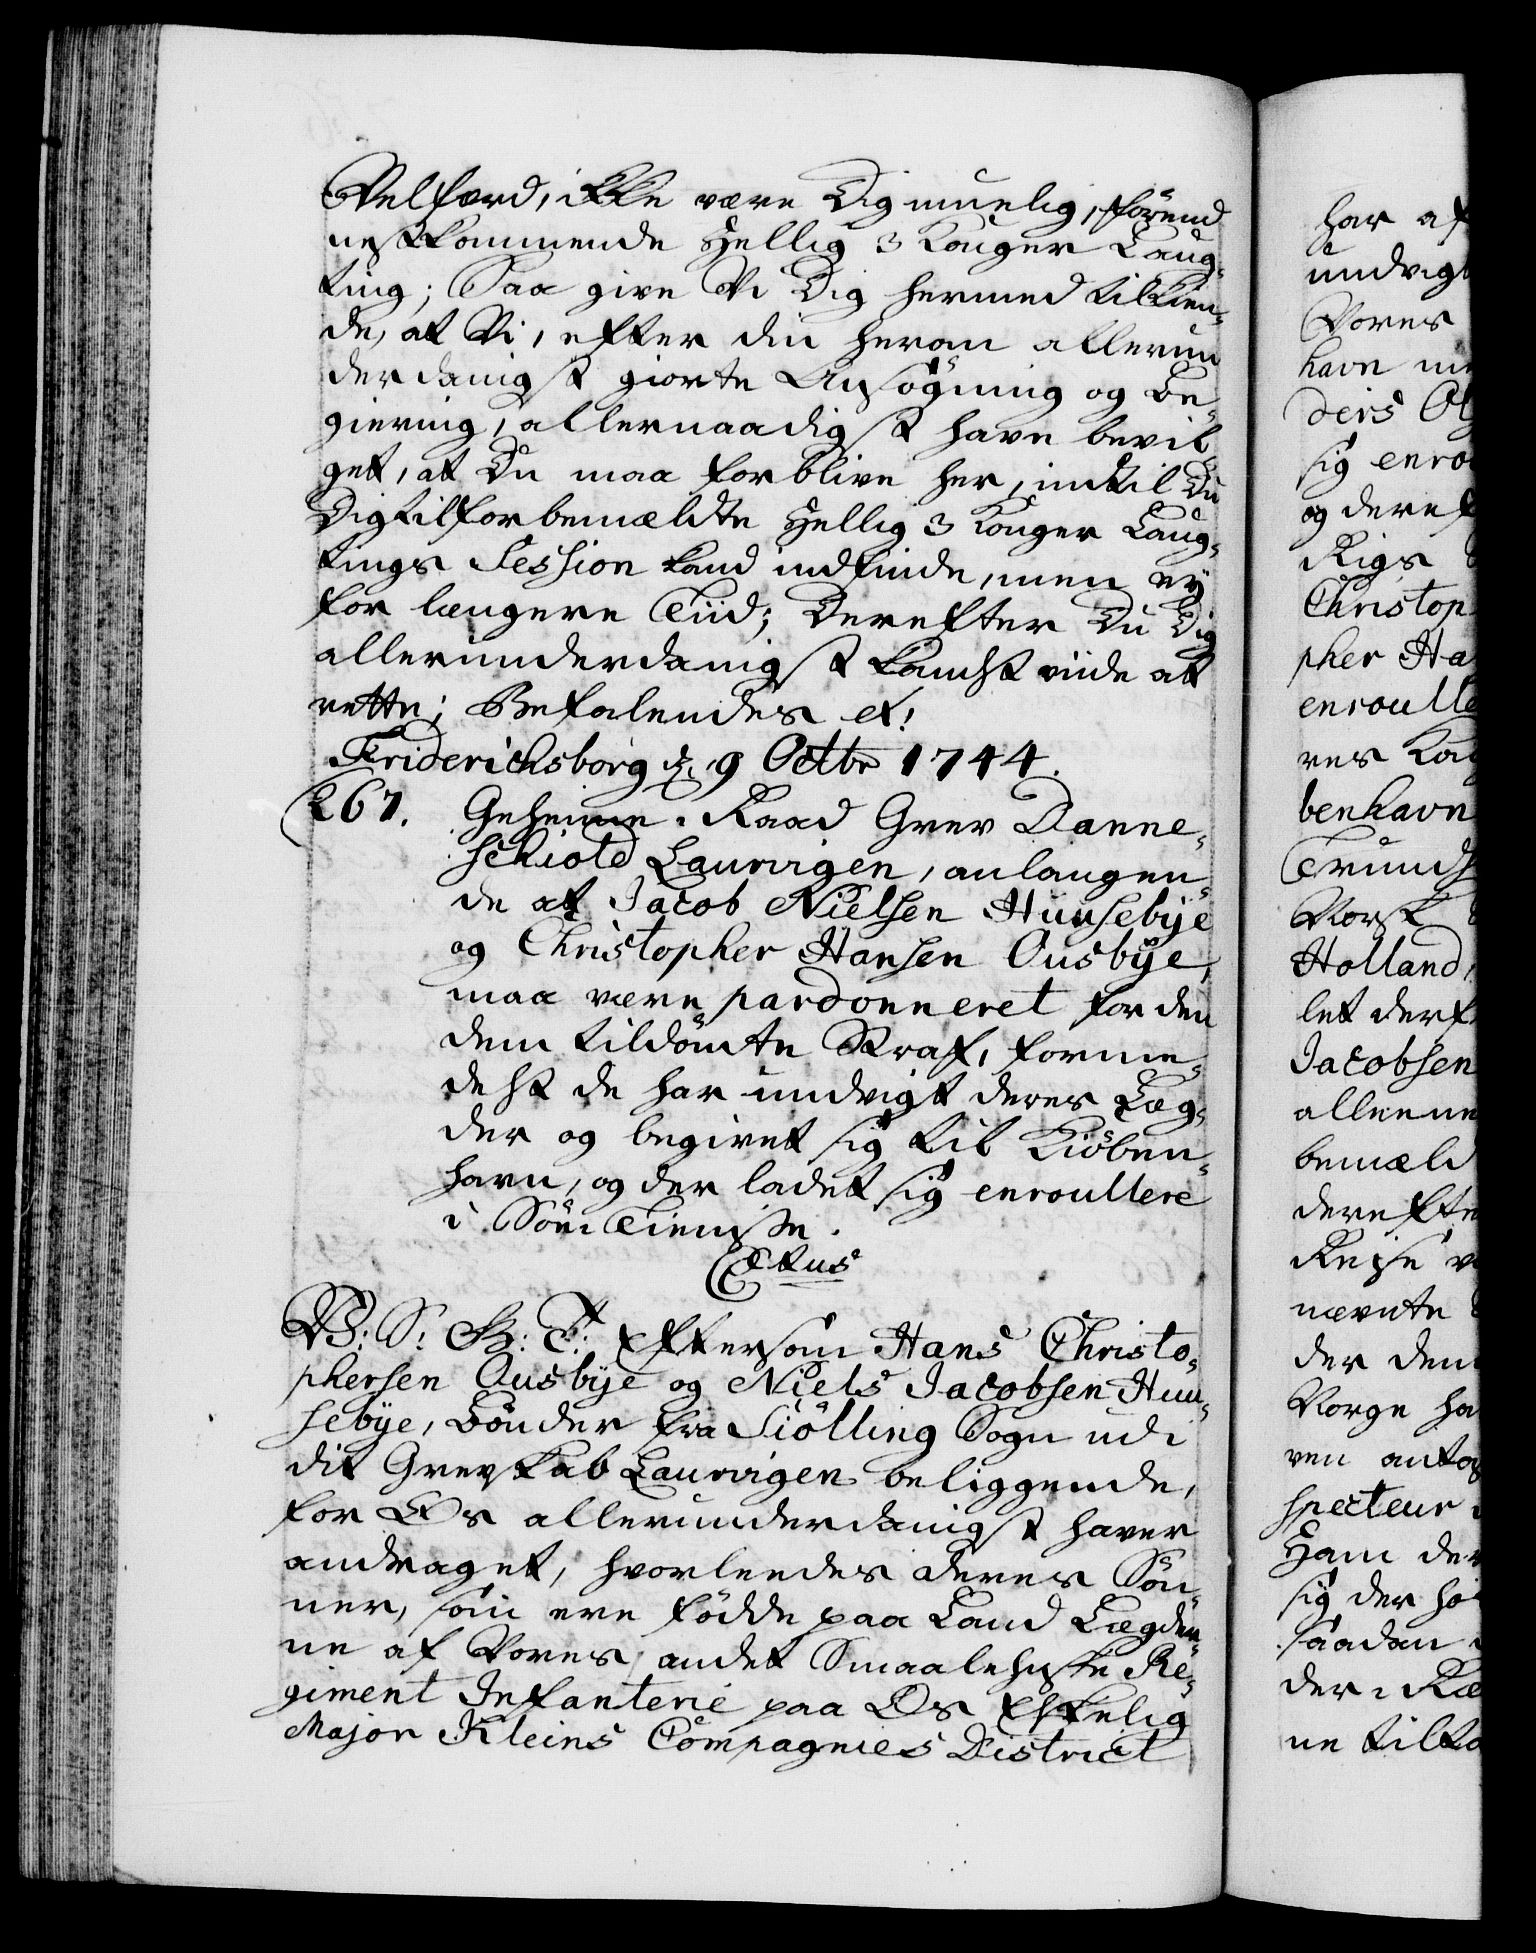 Velfærd, ikke være Dig muelig, förend
nestkommende Hellig 3 Konger Laug-
ting; Saa give Vi Dig hermed tilkien-
de, at Vi, efter din herom allerun
derdanigst giorte Ansögning og Be-
giering, allernaadigst have bevil-
get, at Du maa forblive her, indtil Du
Dig til forbemældte Hellig 3 Konger Laug-
tings Session kand indfinde, men ey
for længere Tiid; Derefter Du Dig
allerunderdanigst kandst viide at
rette; Befalendes et!
Friderichsborg d. 9 Octbr 1744.
267. Geheime-Raad Grev Danne-
schiold Laurvigen, anlangen-
de at Jacob Nielsen Hunsebÿe
og Christopher Hansen Ousbÿe,
maa være pardonneret for den
dem tildömte Straf, forme-
delst de har undvigt deres Læg-
der og begivet sig til Kiöben-
havn, og der ladet sig enroullere
i Söe-Tieniste.
Extus
V: S: G: T: Eftersom Hans Christo-
phersen Ousbÿe og Niels Jacobsen Hun-
sebÿe, Bönder fra Siölling Sogn udi
dit Grevskab Laurvigen beliggende,
for Os allerunderdanigst haver
andraget, hvorledes deres Sön-
ner, som ere födde paa Land Lægder-
ne af Vores andet Smaalehnske Re-
giment Infanterie paa Os Elskelig
Major Kleins Compagnies District
har af
undvigt
Vores
havn
ders
sig enro
og deref
Rigs
Christop
pher Ha
enroulle
res
benhavn
Norsk
Holland,
let derf
Jacobsen
alleene
bemæld
derefte
Reise
nævnte
der dem
Norge ha
ven antag
specteur
Ham der
sig der
saadan
der i
ne tilka